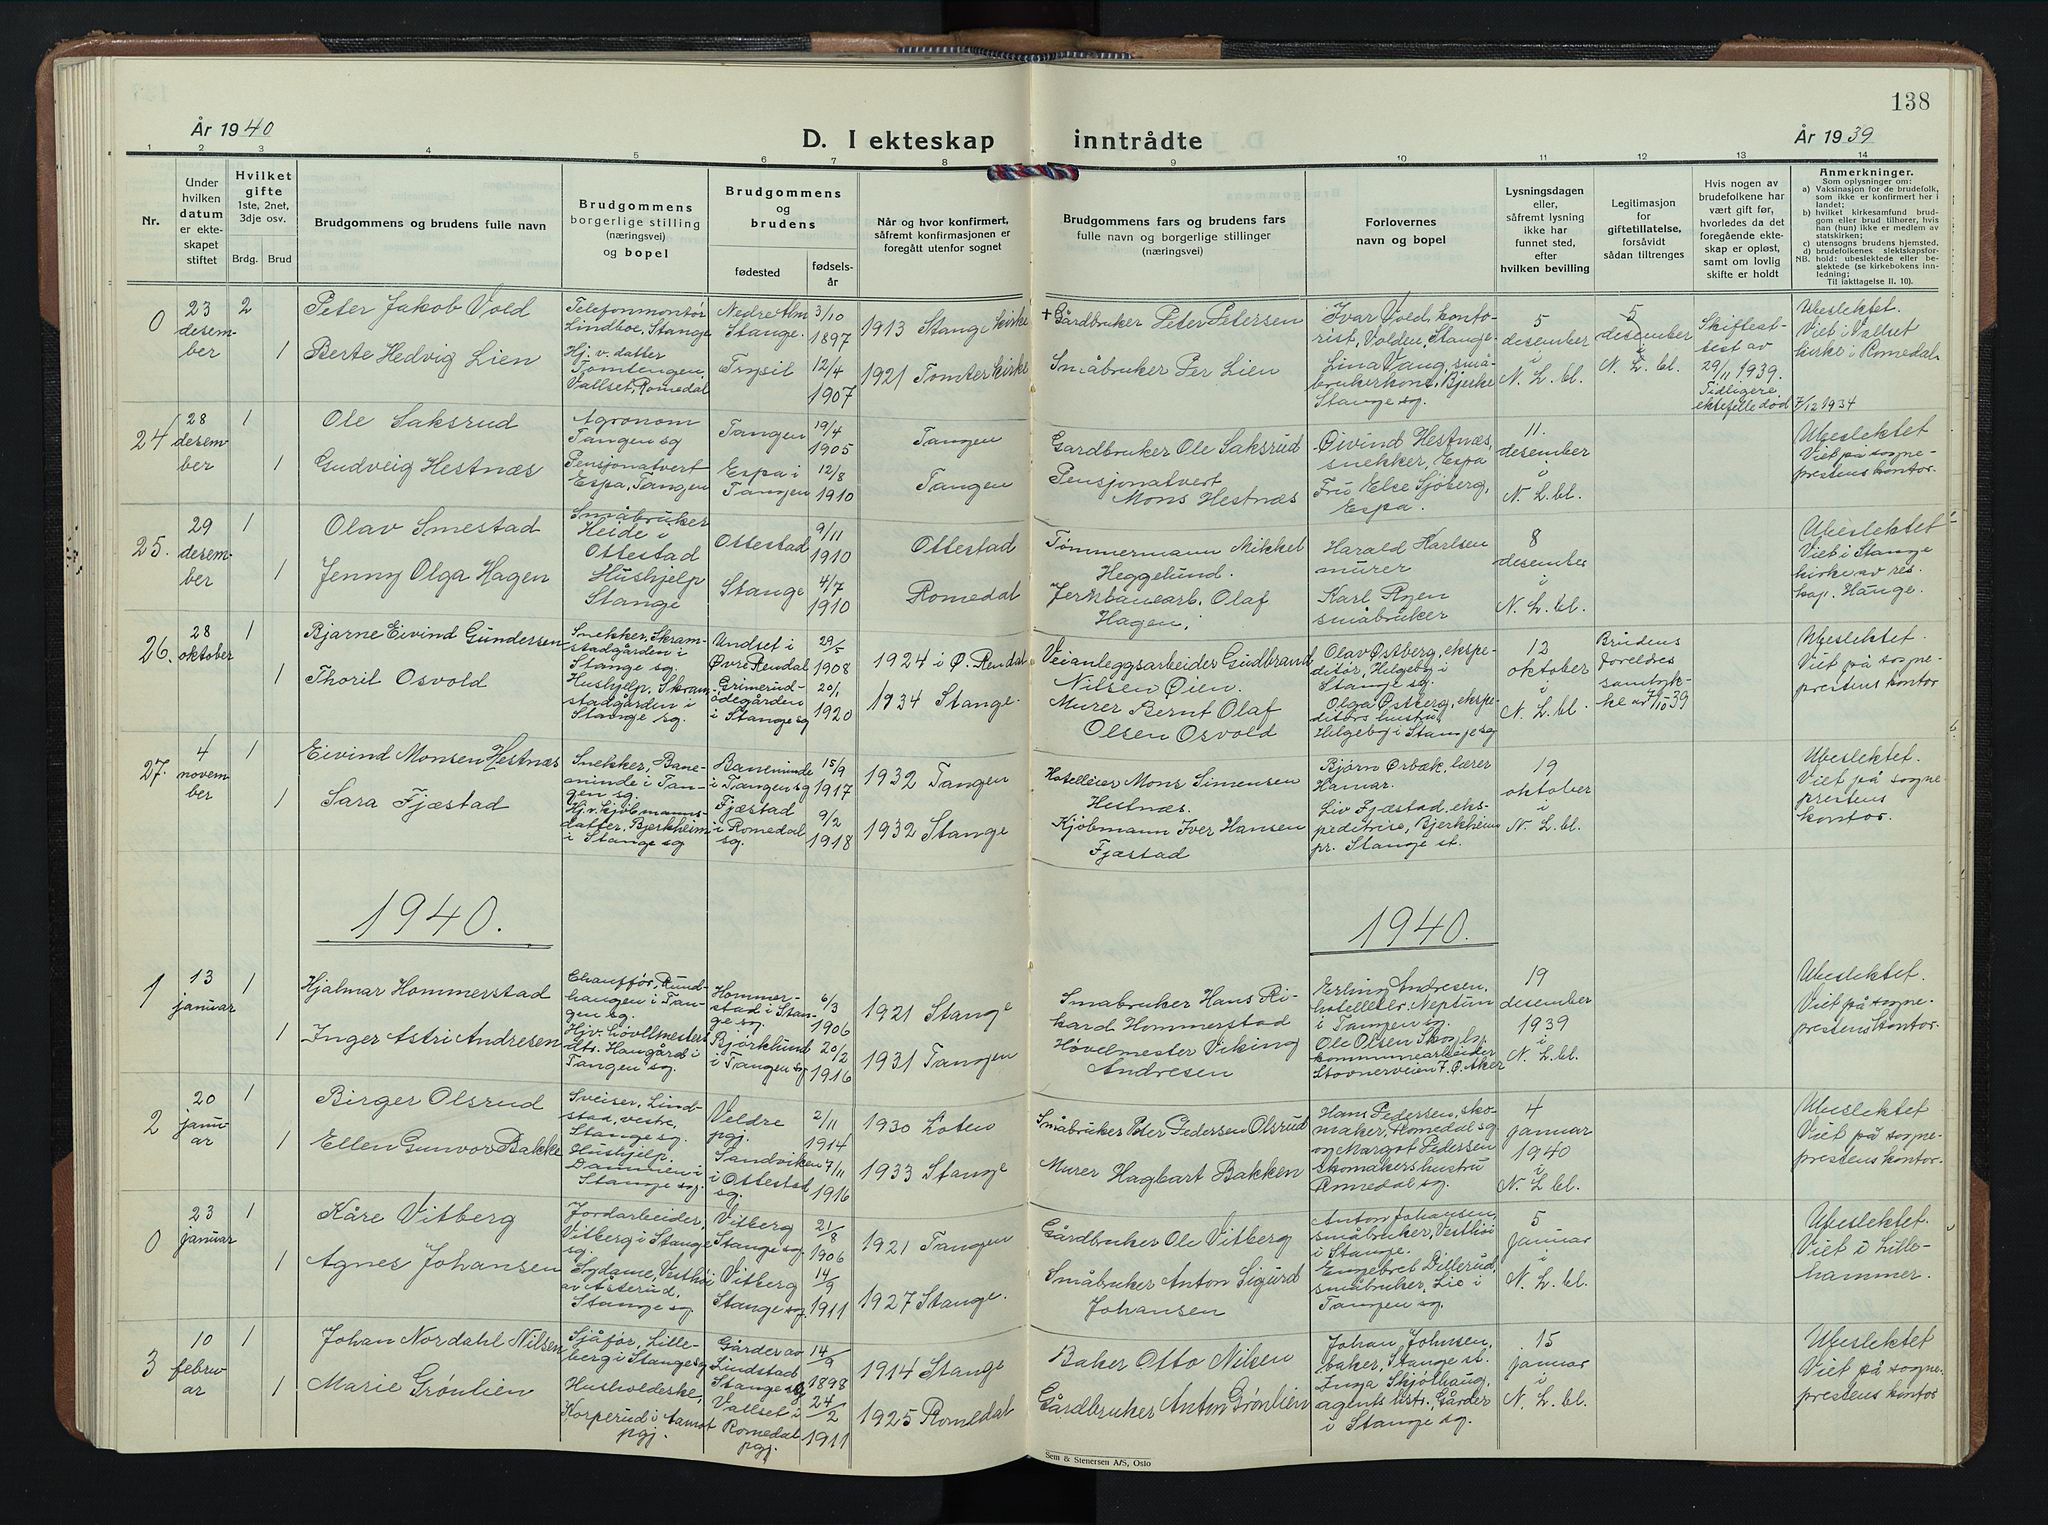 138
År 1940
D. I ekteskap inntrådte
År 1939
1 2 3 4 5 6 7 8 9 10 11 12 13 14
Nr.
Under hvilken datum er ekteskapet stiftet
Hvilket gifte 1ste, 2net, 3dje osv.
Brdg. Brud
Brudgommens og brudens fulle navn
Brudgommens borgerlige stilling (næringsvei) og bopel
Brudgommens og brudens
fødested
fødselsår
Når og hvor konfirmert, såfremt konfirmasjonen er foregått utenfor sognet
Brudgommens fars og brudens fars fulle navn og borgerlige stillinger (næringsvei)
Forlovernes navn og bopel
Lysningsdagen eller, såfremt lysning ikke har funnet sted, efter hvilken bevilling
Legitimasjon for giftetillatelse, forsåvidt sådan tiltrenges
Hvis nogen av brudefolkene har vært gift før, hvorledes da det foregående ekteskap er opløst, samt om lovlig skifte er holdt
Anmerkninger.
Som oplysninger om:
a) Vaksinasjon for de brudefolk, som ikke er konfirmert her i landet;
b) hvilket kirkesamfund brudgom eller brud tilhører, hvis han (hun) ikke er medlem av statskirken;
c) utensogns brudens hjemsted.
d) brudefolkenes slektskapsforhold: ubeslektede eller beslektede (se kirkebokens innledning;
NB.
Til iakttagelse II. 10).
0 23 desember 2 Peter Jakob Vold Telefonmontör Lindboe, Stange Nedre Alm Stange. 3/10 1897 1913 Stange kirke + Gårdbruker Peter Petersen Ivar Vold, kontorist, Volden, Stange. 5 desember i N. L. bl. 5 desember i N. L. bl. Skifteattest av 29/11 1939. Tidligere ektefelle død 7/12 1934 Ubeslektet. Viet i Vallset kirke i Romedal
1 Berte Hedvig Lien Hj. v. datter Tomtengen, Vallset, Romedal Trysil 12/4 1907 1921 Tomter kirke Småbruker Per Lien Lina Vang, småbrukerkone, Bjerke Stange sg.
24 28 desember 1 Ole Saksrud Agronom Tangen sg Tangen 19/4 1905 Tangen Gardbruker Ole Saksrud Øivind Hestnæs, snekker, Espa 11. desember i N. L. bl. Ubeslektet Viet på sogneprestens kontor.
1 Gudveig Hestnæs Pensjonatvert Espa, Tangen Espa i Tangen 12/8 1910 Tangen Pensjonatvert Mons Hestnæs Fru Else Sjöberg, Espa.
25. 29 desember 1 Olav Smestad Småbruker Heide i Ottestad Ottestad 9/11 1910 Ottestad Tømmermann Mikkel Heggelund. Harald Karlsen murer 8 desember i N. L. bl. Ubeslektet Viet i Stange kirke av res. kap. Hauge.
1 Jenny Olga Hagen Hushjelp Stange Stange 4/7 1910 Romedal Jernbanearb. Olaf Hagen, Karl Ryen småbruker
26. 28 oktober 1 Bjarne Eivind Gundersen Snekker, Skramstadgården i Stange sg. Undset i Øvre Rendal 29/5 1908 1924 i Ø. Rendal Veianleggsarbeider Gudbrand Nilsen Øien. Olav Østberg, ekspeditør, Hilgeboj i Stange sg. 12 oktober i N. L. bl. Brudens foreldres samtykke av 7/10-39 Ubeslektet. Viet på sogneprestens kontor
1 Thoril Osvold Hushjelp, Skramstadgården i Stange sg. Grimerudødegården i Stange sg 20/1 1920 1934 Stange. Murer Bernt Olaf Olsen Osvold Olga Østberg, ekspeditörs hustru, Hilgeboj i Stange sg
27. 4 november 1 Eivind Monsen Hestnæs Snekker, Baneminde i Tangen sg. Baneminde i Tangen sg 15/9 1917 1932 Tangen Hotelleier Mons Simensen Hestnæs. Bjørn Ørbæk, lærer Hamar. 19 oktober i N. L. bl. Ubeslektet Viet på sogneprestens kontor.
1 Sara Fjæstad Hj.v. kjøbmannsdatter, Bjerkheim i Stange sg Fjæstad i Romedal sg. 9/2 1918 1932 Stange Kjøbmann Iver Hansen Fjæstad Liv Fjæstad, ekspeditrise, Bjerkheim pr. Stange st.
1940. 1940.
1 13 januar 1 Hjalmar Hommerstad Chauffør, Rundhaugen i Tangen sg. Hommerstad i Stange sg. 6/3 1906 1921 Stange Småbruker Hans Rikard Hommerstad Erling Andresen, hotelleier, Neptun i Tangen sg. 19 desember 1939 i N. L. bl. Ubeslektet. Viet på sogneprestens kontor.
1 Inger Astri Andresen Hjv. hövllmesters dtr. Haugård i Tangen sg. Bjørklund i Tangen sg 20/2 1916 1931 Tangen Høvelmester Viking Andresen Ole Olsen Skogly, kommunearbeider Stovnerveien 7. Ø. Aker
2 20 januar 1 Birger Olsrud Sveiser, Lindstad, vestre, Stange sg. Veldre pgj. 2/11 1914 1930 Løten Småbruker Peter Pedersen Olsrud Hans Pedersen, skomaker, Romedal sg 4 januar 1940 i N. L. bl. Ubeslektet Viet på sogneprestens kontor.
1 Ellen Gunvor Bakke Hushjelp. Dammen i Stange sg. Sandviken i Ottestad sg. 7/11 1916 1933 Stange Murer Hagbart Bakken og Margot Pedersen skomakershustru Romedal sg.
0 23 januar 1 Kåre Vitberg Jordarbeider, Vitberg i Stange sg. Vitberg Stange sg. 21/8 1906 1921 Tangen Gårdbruker Ole Vitberg Anton Johansen, småbruker, Vesthøi i Stange. 5 januar i N. L. bl. Ubeslektet. Viet i Lillehammer.
1 Agnes Johansen Sydame, Vesthøi av Åsterud, Stange sg. Vitberg Stange sg. 14/9 1911 1927 Stange. Småbruker Anton Sigurd Johansen Engebret Dillerud, småbruker, Lie i Tangen sg.
3 10 februar 1 Johan Nordahl Nilsen Sjåfør, Lilleberg i Stange sg Gårder av Lindstad Stange sg 14/9 1898 1914 Stange Baker Otto Nilsen Johan Johnsen, baker, Stange st. 15 januar i N. L. bl. Ubeslektet Viet på sogneprestens kontor
1 Marie Grønlien Husholderske, Korperud i Aamot pgj. Vallset i Romedal pgj. 24/2 1911 1925 Romedal Gårdbruker Anton Grønlien Inga Skjølhaug, agents hstr., Gårder i Stange sg.
Sem & Stenersen A/S, Oslo